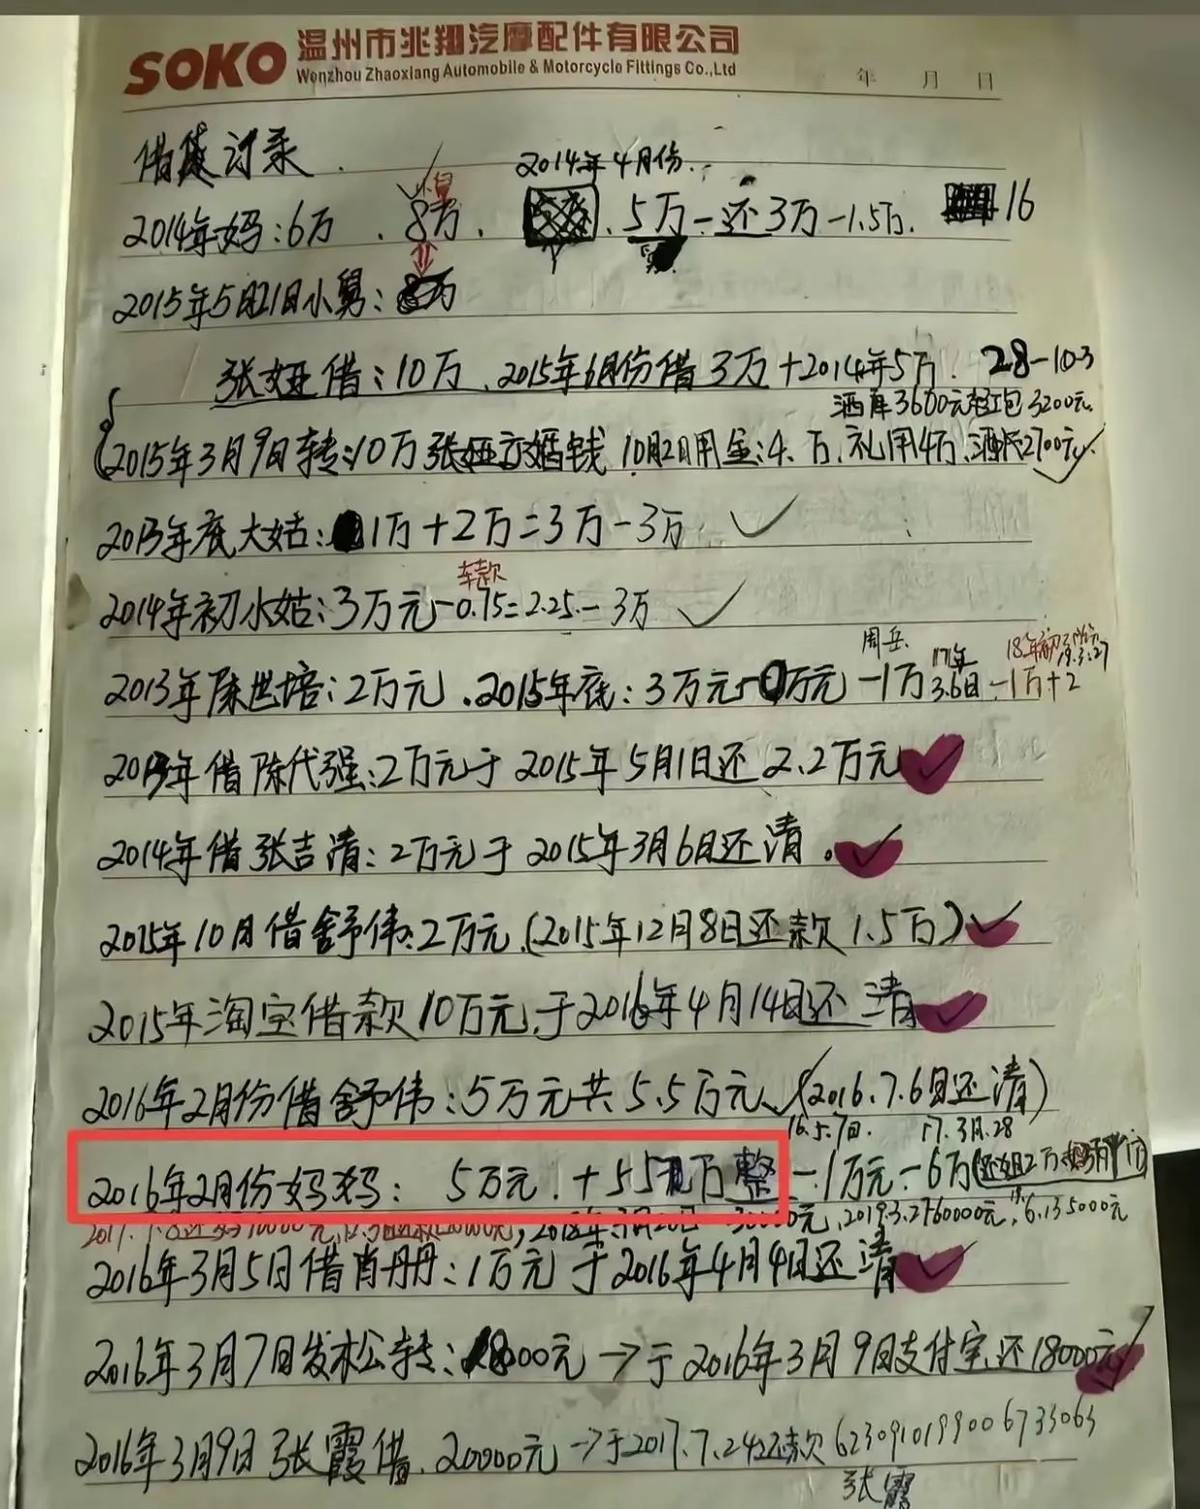 SOKO 温州市兆翔汽摩配件有限公司
Wenzhou Zhaoxiang Automobile & Motorcycle Fittings Co.,Ltd
年 月 日
2014年4月份
2014年妈:6万 . 8万 . 5万-还3万-1.5万. 16
2015年5月21日小舅:
张娅借:10万.2015年6月份借3万+2014年5万. 28-10-3
3600元红包3200元.
2015年3月9日转:10万张娅 婚钱 10月2日用金:4.万.礼用4万. 2700元
2013年底大姑: 1万+2万=3万-3万
车款
2014年初小姑:3万元-0.75=2.25-3万
周岳. 17年 18年初
2013年陈世培:2万元.2015年底:3万元- 万元-1万 3.6日-1万+2
年借陈代强:2万元于2015年5月1日还2.2万元
2014年借张吉清:2万元于2015年3月6日还清.
2015年10月借舒伟:2万元.(2015年12月8日还款1.5万)
2015年淘宝借款10万元.于2016年4月14日还清
2016年2月份借舒伟:5万元共5.5万元.(2016.7.6日还清)
16.5.7日. 17.3月.28
2016年2月份妈妈: 5万元.+5 万整-1万元-6万(还姐2万
2016年3月5日借肖丹丹:1万元于2016年4月4日还清
2016年3月7日发松转: 8000元→于2016年3月9日支付宝还18000元
2016年3月9日张霞借.20000元→于2017.7.24还款6230910199006733063
张霞